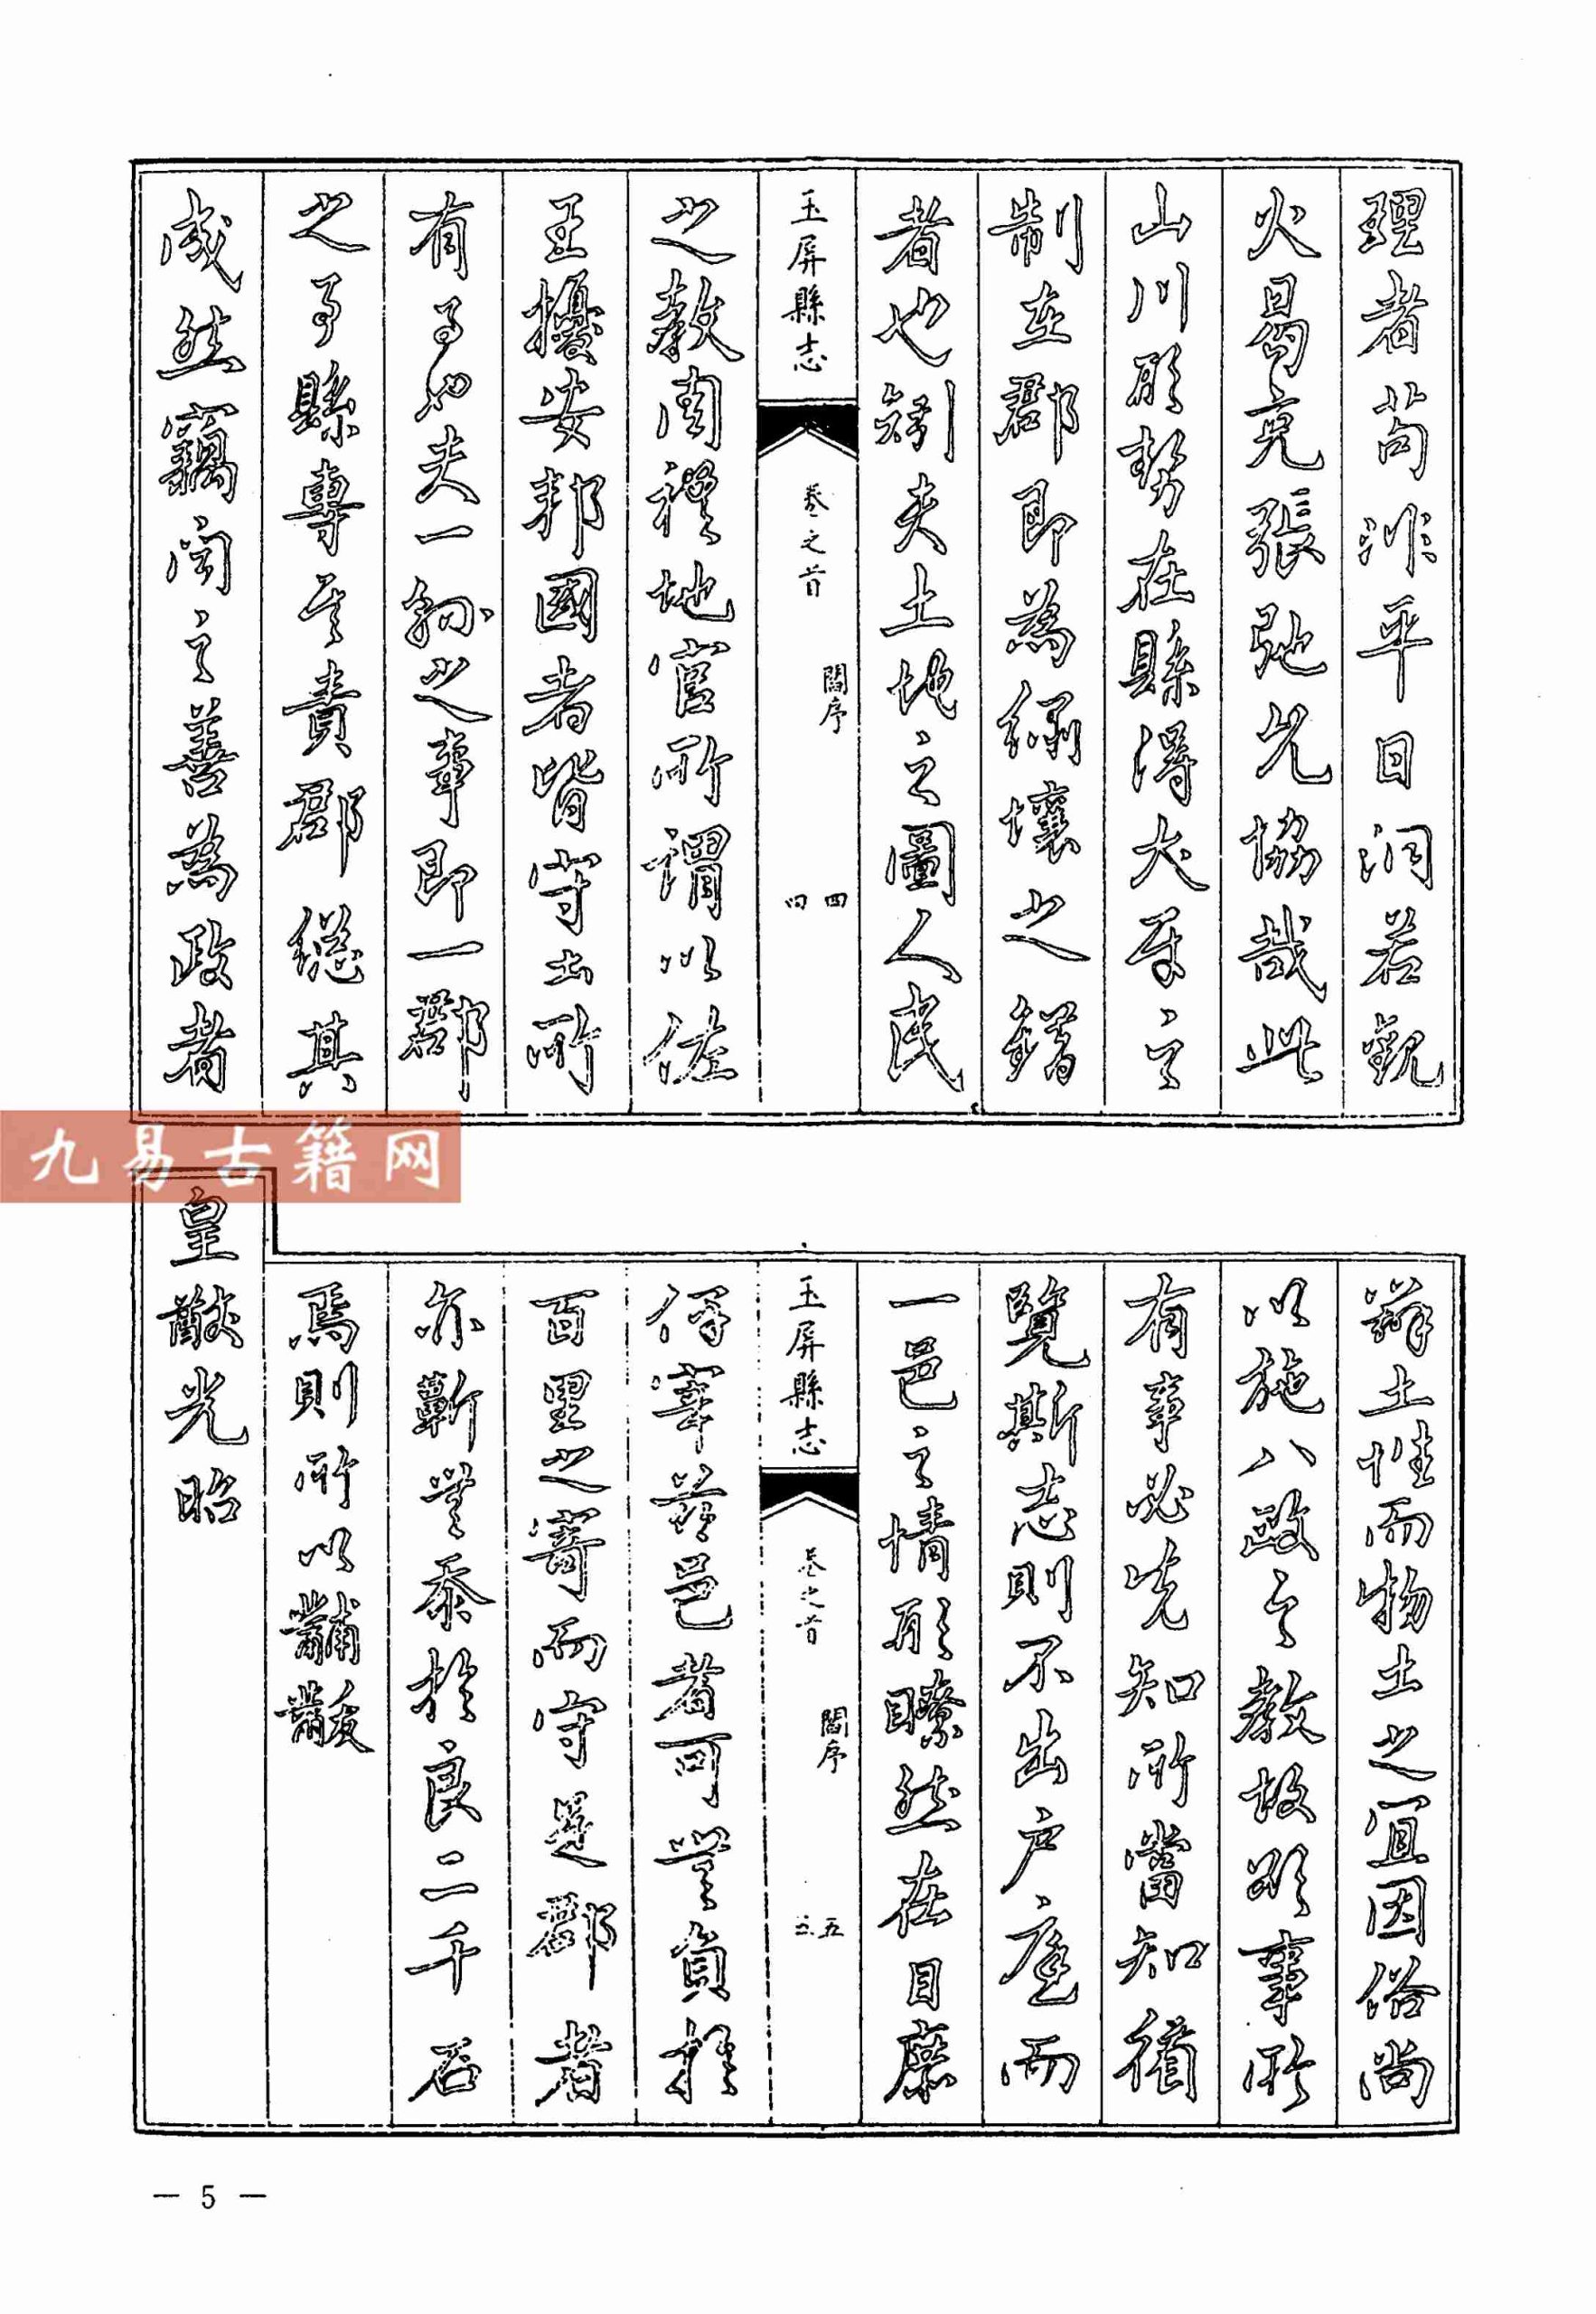 理者苟非平日洞若觀
火曷克張弛允協哉此
山川形勢在縣得犬牙之
制在郡即為繡壤之錯
者也矧夫土地之圖人民
玉屏縣志
卷之首
閻序
四
四
之教周禮地官所謂以佐
王擾安邦國者皆守土所
有事也夫一縣之事即一郡
之事縣專其責郡總其
成然竊聞之善為政者
辨土性而物土之宜因俗尚
以施八政之教故遇事所
有事必先知所當知循
覽斯志則不出戶庭而
一邑之情形瞭然在目庶
玉屏縣志
卷之首
閻序
五
五
俾宰茲邑者可無負於
百里之寄而守是郡者
亦蘄無忝於良二千石
焉則所以黼黻
皇猷光昭
九易古籍网
— 5 —